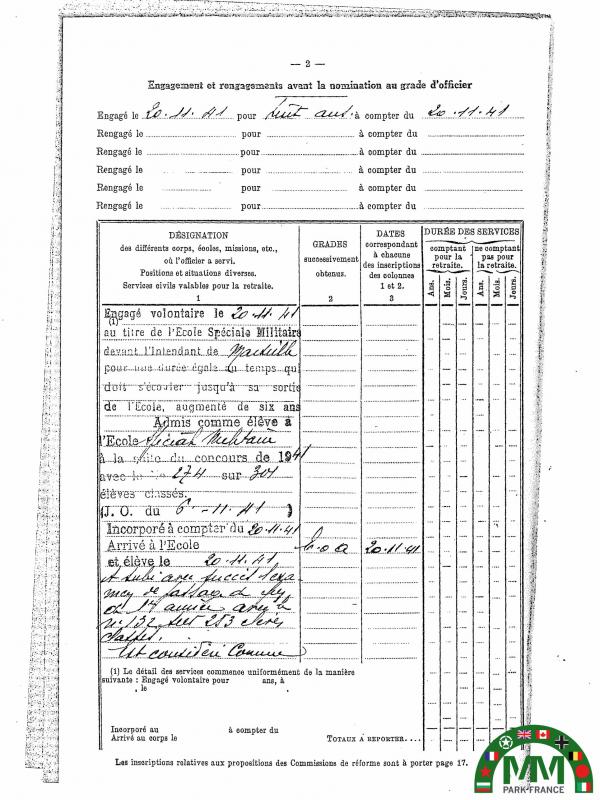 — 2 —
Engagement et rengagements avant la nomination au grade d'officier
Engagé le 20.11.41 pour huit ans à compter du 20.11.41
Rengagé le pour à compter du
Rengagé le pour à compter du
Rengagé le pour à compter du
Rengagé le pour à compter du
Rengagé le pour à compter du
DÉSIGNATION
des différents corps, écoles, missions, etc.,
où l'officier a servi.
Positions et situations diverses.
Services civils valables pour la retraite.
1
GRADES
successivement
obtenus.
2
DATES
correspondant
à chacune
des inscriptions
des colonnes
1 et 2.
3
DURÉE DES SERVICES
comptant
pour la
retraite.
ne comptant
pas pour
la retraite.
Ans.
Mois.
Jours.
Ans.
Mois.
Jours.
Engagé volontaire le 20.11.41
(1)
au titre de l'Ecole Spéciale Militaire
devant l'Intendant de Marseille
pour une durée égale au temps qui
doit s'écouler jusqu'à sa sortie
de l'Ecole, augmenté de six ans
Admis comme élève à
l'Ecole Spéciale Militaire
à la suite du concours de 1941
avec le 274 sur 301
élèves classés.
(J.O. du 6-11.41)
Incorporé à compter du 20.11.41
Arrivé à l'Ecole 20.11.41
et élève le 20.11.41
A subi avec succès l'exa
men de passage de
1re année avec le
n° 132 sur 283 élèves
classés.
Est considéré comme
(1) Le détail des services commence uniformément de la manière
suivante : Engagé volontaire pour ans, à
, le .
Incorporé au à compter du
Arrivé au corps le
TOTAUX A REPORTER....
Les inscriptions relatives aux propositions des Commissions de réforme sont à porter page 17.
MM
PARK·FRANCE